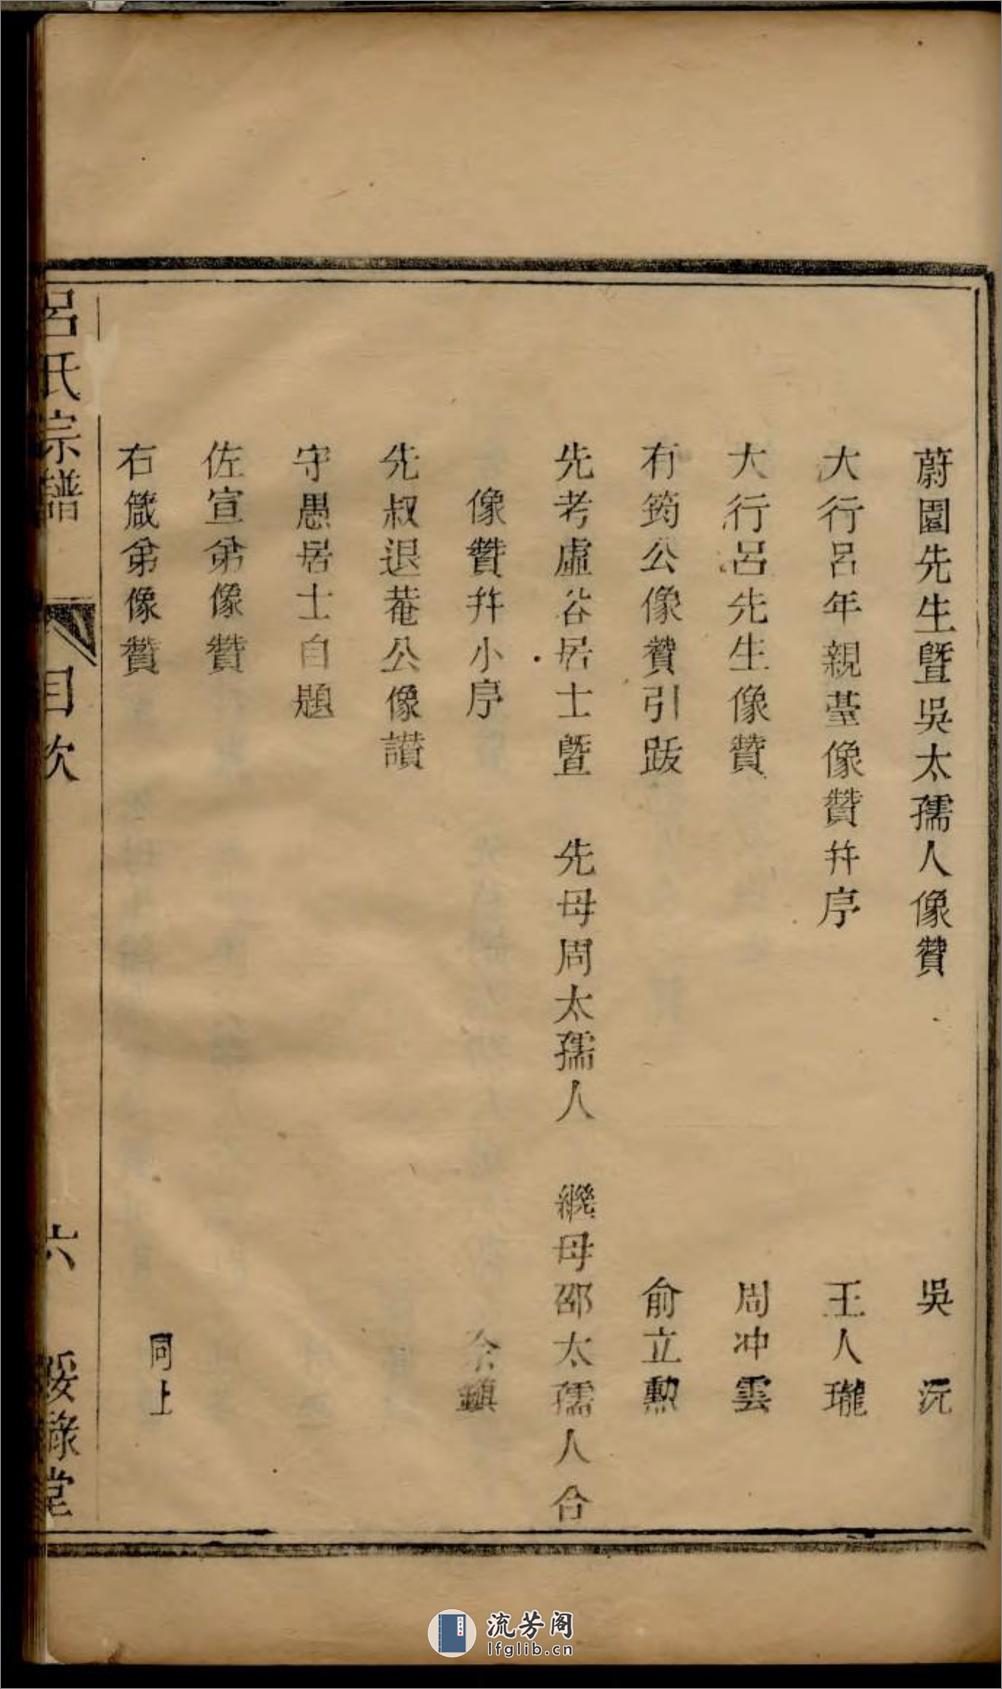 蔚園先生暨吳太孺人像贊 吳沅
大行呂年親臺像贊幷序 王人瓏
大行呂先生像贊 周冲雲
有筠公像贊引跋 俞立勲
先考虛谷居士暨 先母周太孺人 繼母邵太孺人合
像贊幷小序 余鎮
先叔退菴公像讃
守愚居士自題
佐宣弟像贊
右箴弟像贊 同上
呂氏宗譜 目次 六 綏祿堂
流芳阁
lfglib.cn